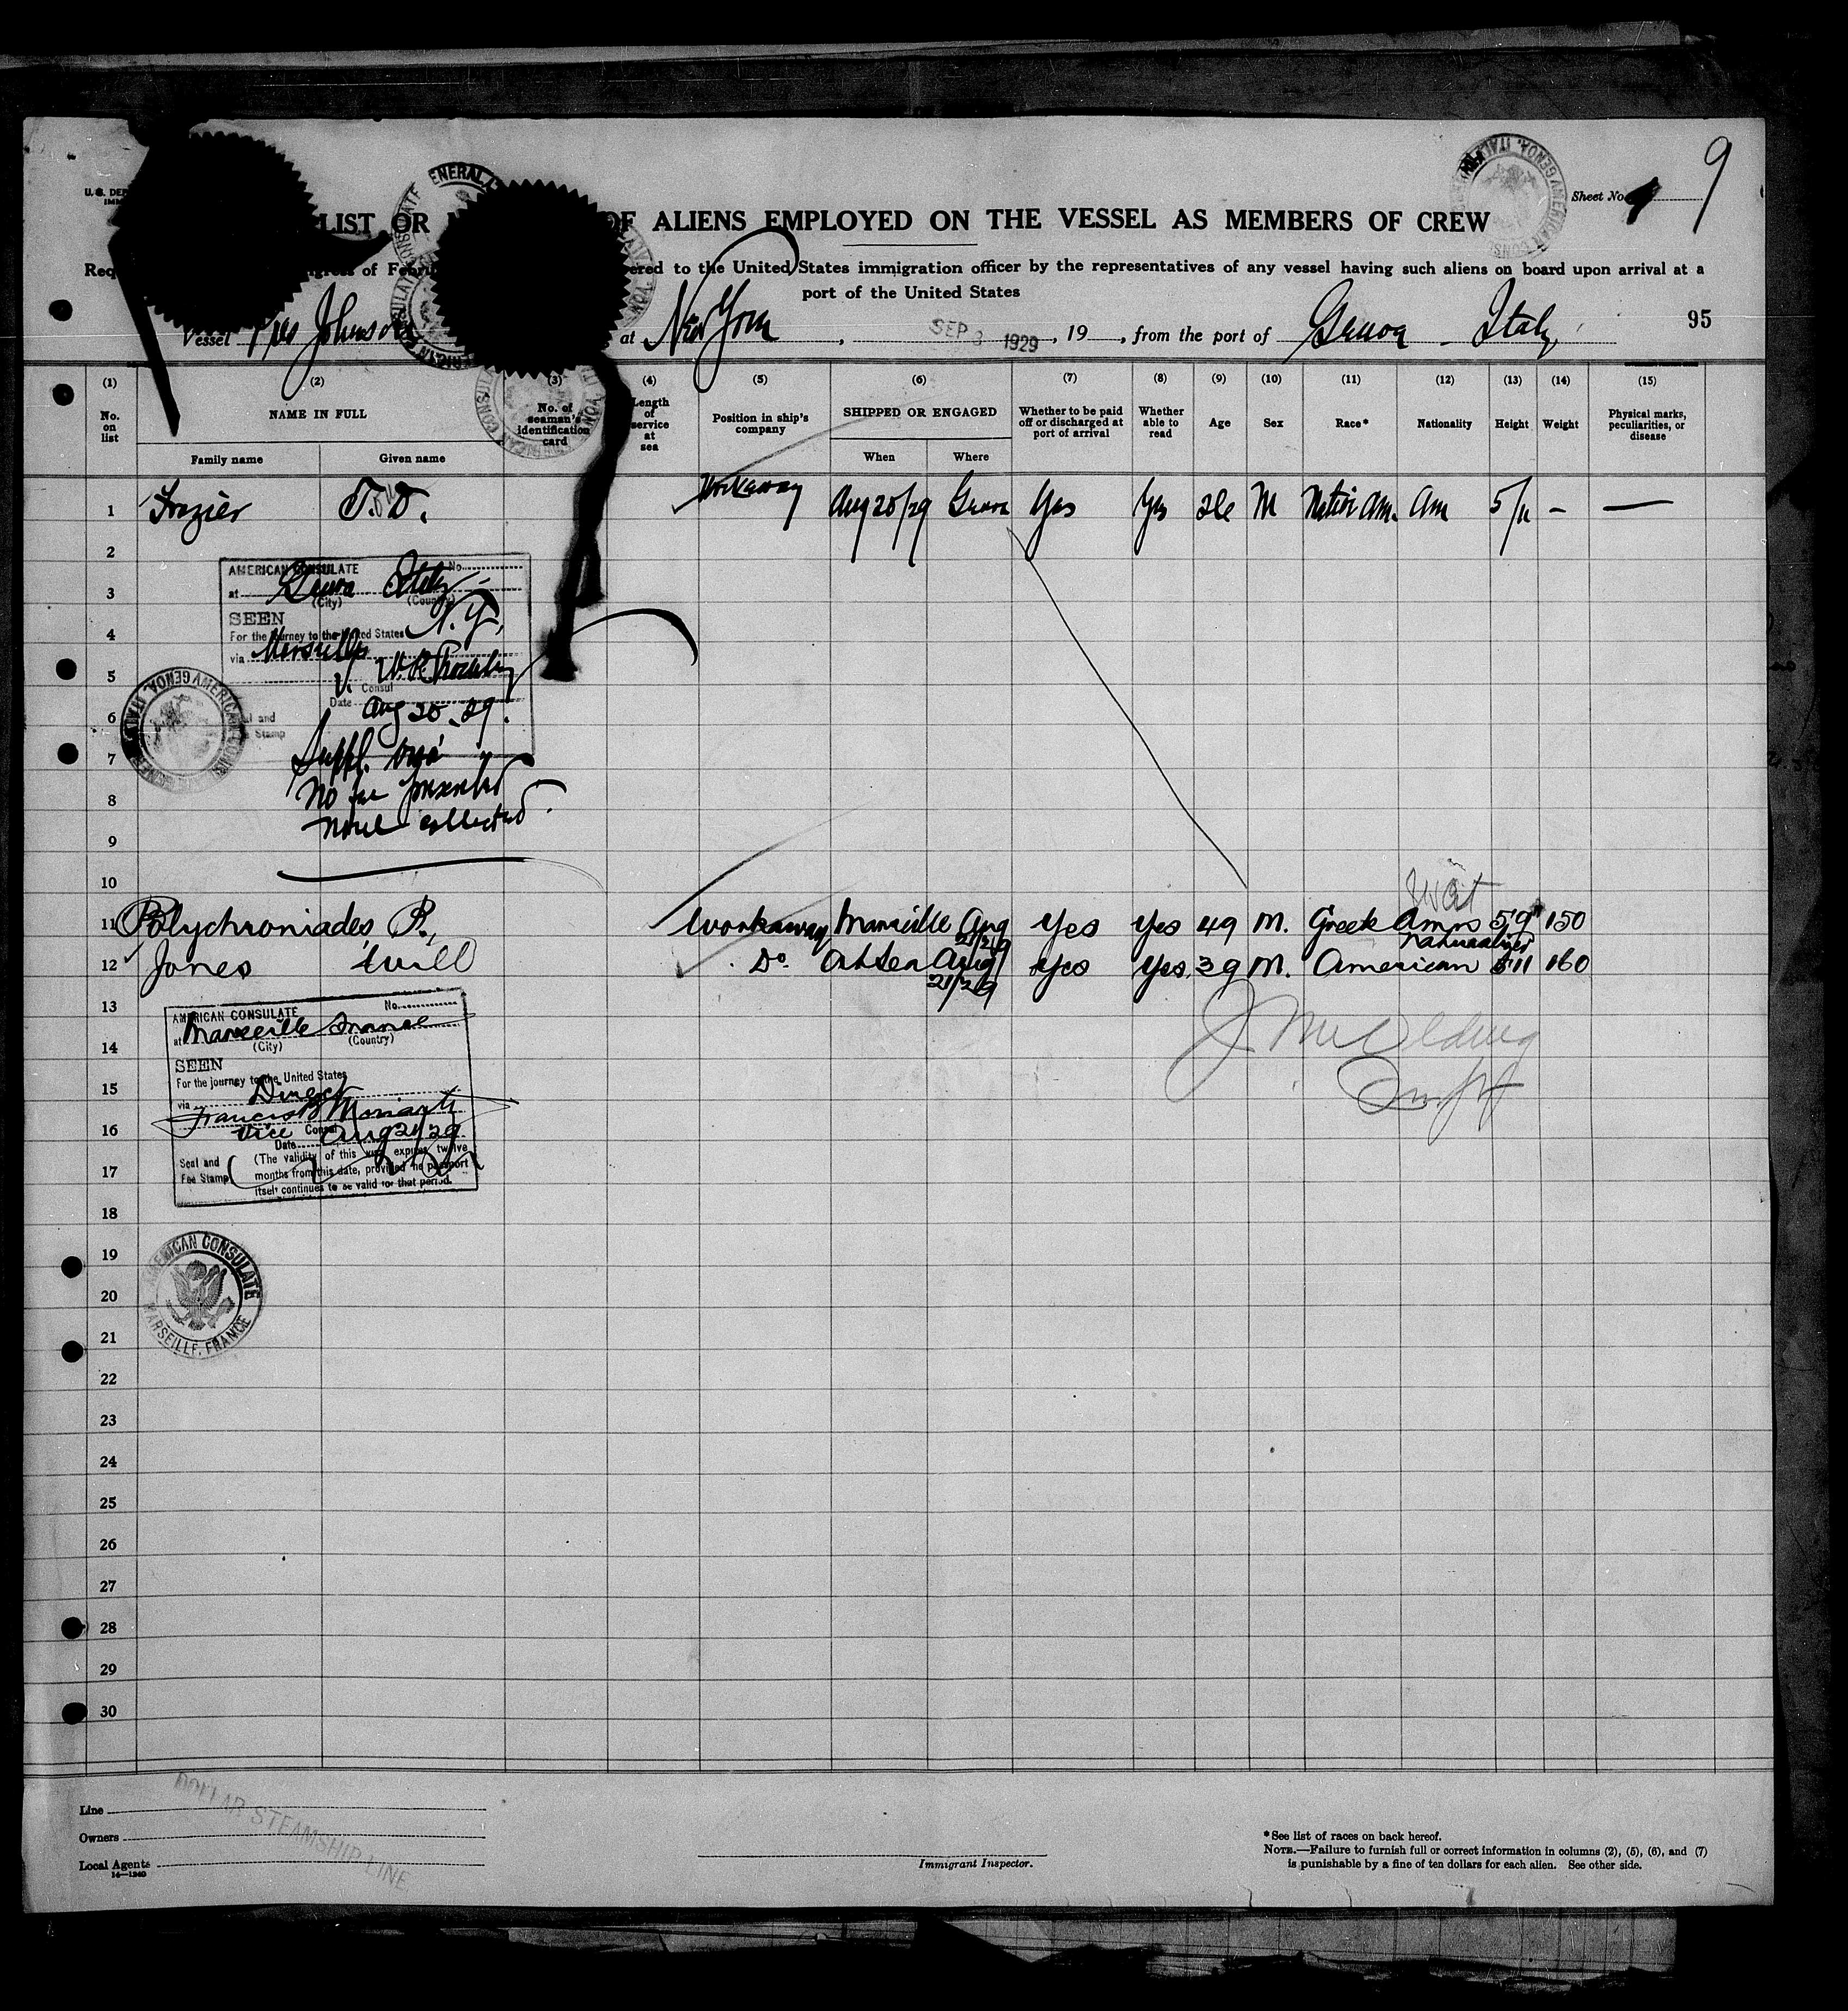 9
Sheet No.
U. S. DEP
LIST OR OF ALIENS EMPLOYED ON THE VESSEL AS MEMBERS OF CREW
Req gress of Febru ered to the United States immigration officer by the representatives of any vessel having such aliens on board upon arrival at a
port of the United States
Vessel Pres Johnson at New York, SEP 3 1929, 19, from the port of Genoa - Italy
95
(1) (2) (3) (4) (5) (6) (7) (8) (9) (10) (11) (12) (13) (14) (15)
No. on list NAME IN FULL No. of seaman's identification card Length of service at sea Position in ship's company SHIPPED OR ENGAGED Whether to be paid off or discharged at port of arrival Whether able to read Age Sex Race* Nationality Height Weight Physical marks, peculiarities, or disease
Family name Given name When Where
1 Frazier T. D. Workaway Aug 20/29 Genoa Yes Yes M Native Am. Am 5/11 - —
2
AMERICAN CONSULATE No.
3 at Genoa Italy
(City) (Country)
SEEN
4 For the journey to the United States N.Y.
via Marseille
5 V. Consul
Date Aug 20-29.
6
7 Suppl. visa
8 No fee presented
9 None collected
10
11 Polychroniades P. Workaway Marseille Aug 21/29 Yes Yes 49 M. Greek Amn Naturalized 5'9" 150
12 Jones Will Do. At Sea Aug 21/29 Yes Yes 39 M. American 5'11 160
13
AMERICAN CONSULATE No.
at Marseille France
14 (City) (Country)
SEEN
For the journey to the United States
15 via Direct
Francis Moriarty
16 Vice Consul
Date Aug 21/29
(The validity of this visa expires twelve
17 months from this date, provided the passport
itself continues to be valid for that period.
Seal and
Fee Stamp
18
19
20
21
AMERICAN CONSULATE
MARSEILLE, FRANCE
22
23
24
25
26
27
28
29
30
AMERICAN CONSULATE GENERAL
GENOA, ITALY
Line
Owners
Local Agents
14—1240
DOLLAR STEAMSHIP LINE
Immigrant Inspector.
*See list of races on back hereof.
NOTE.—Failure to furnish full or correct information in columns (2), (5), (6), and (7)
is punishable by a fine of ten dollars for each alien. See other side.